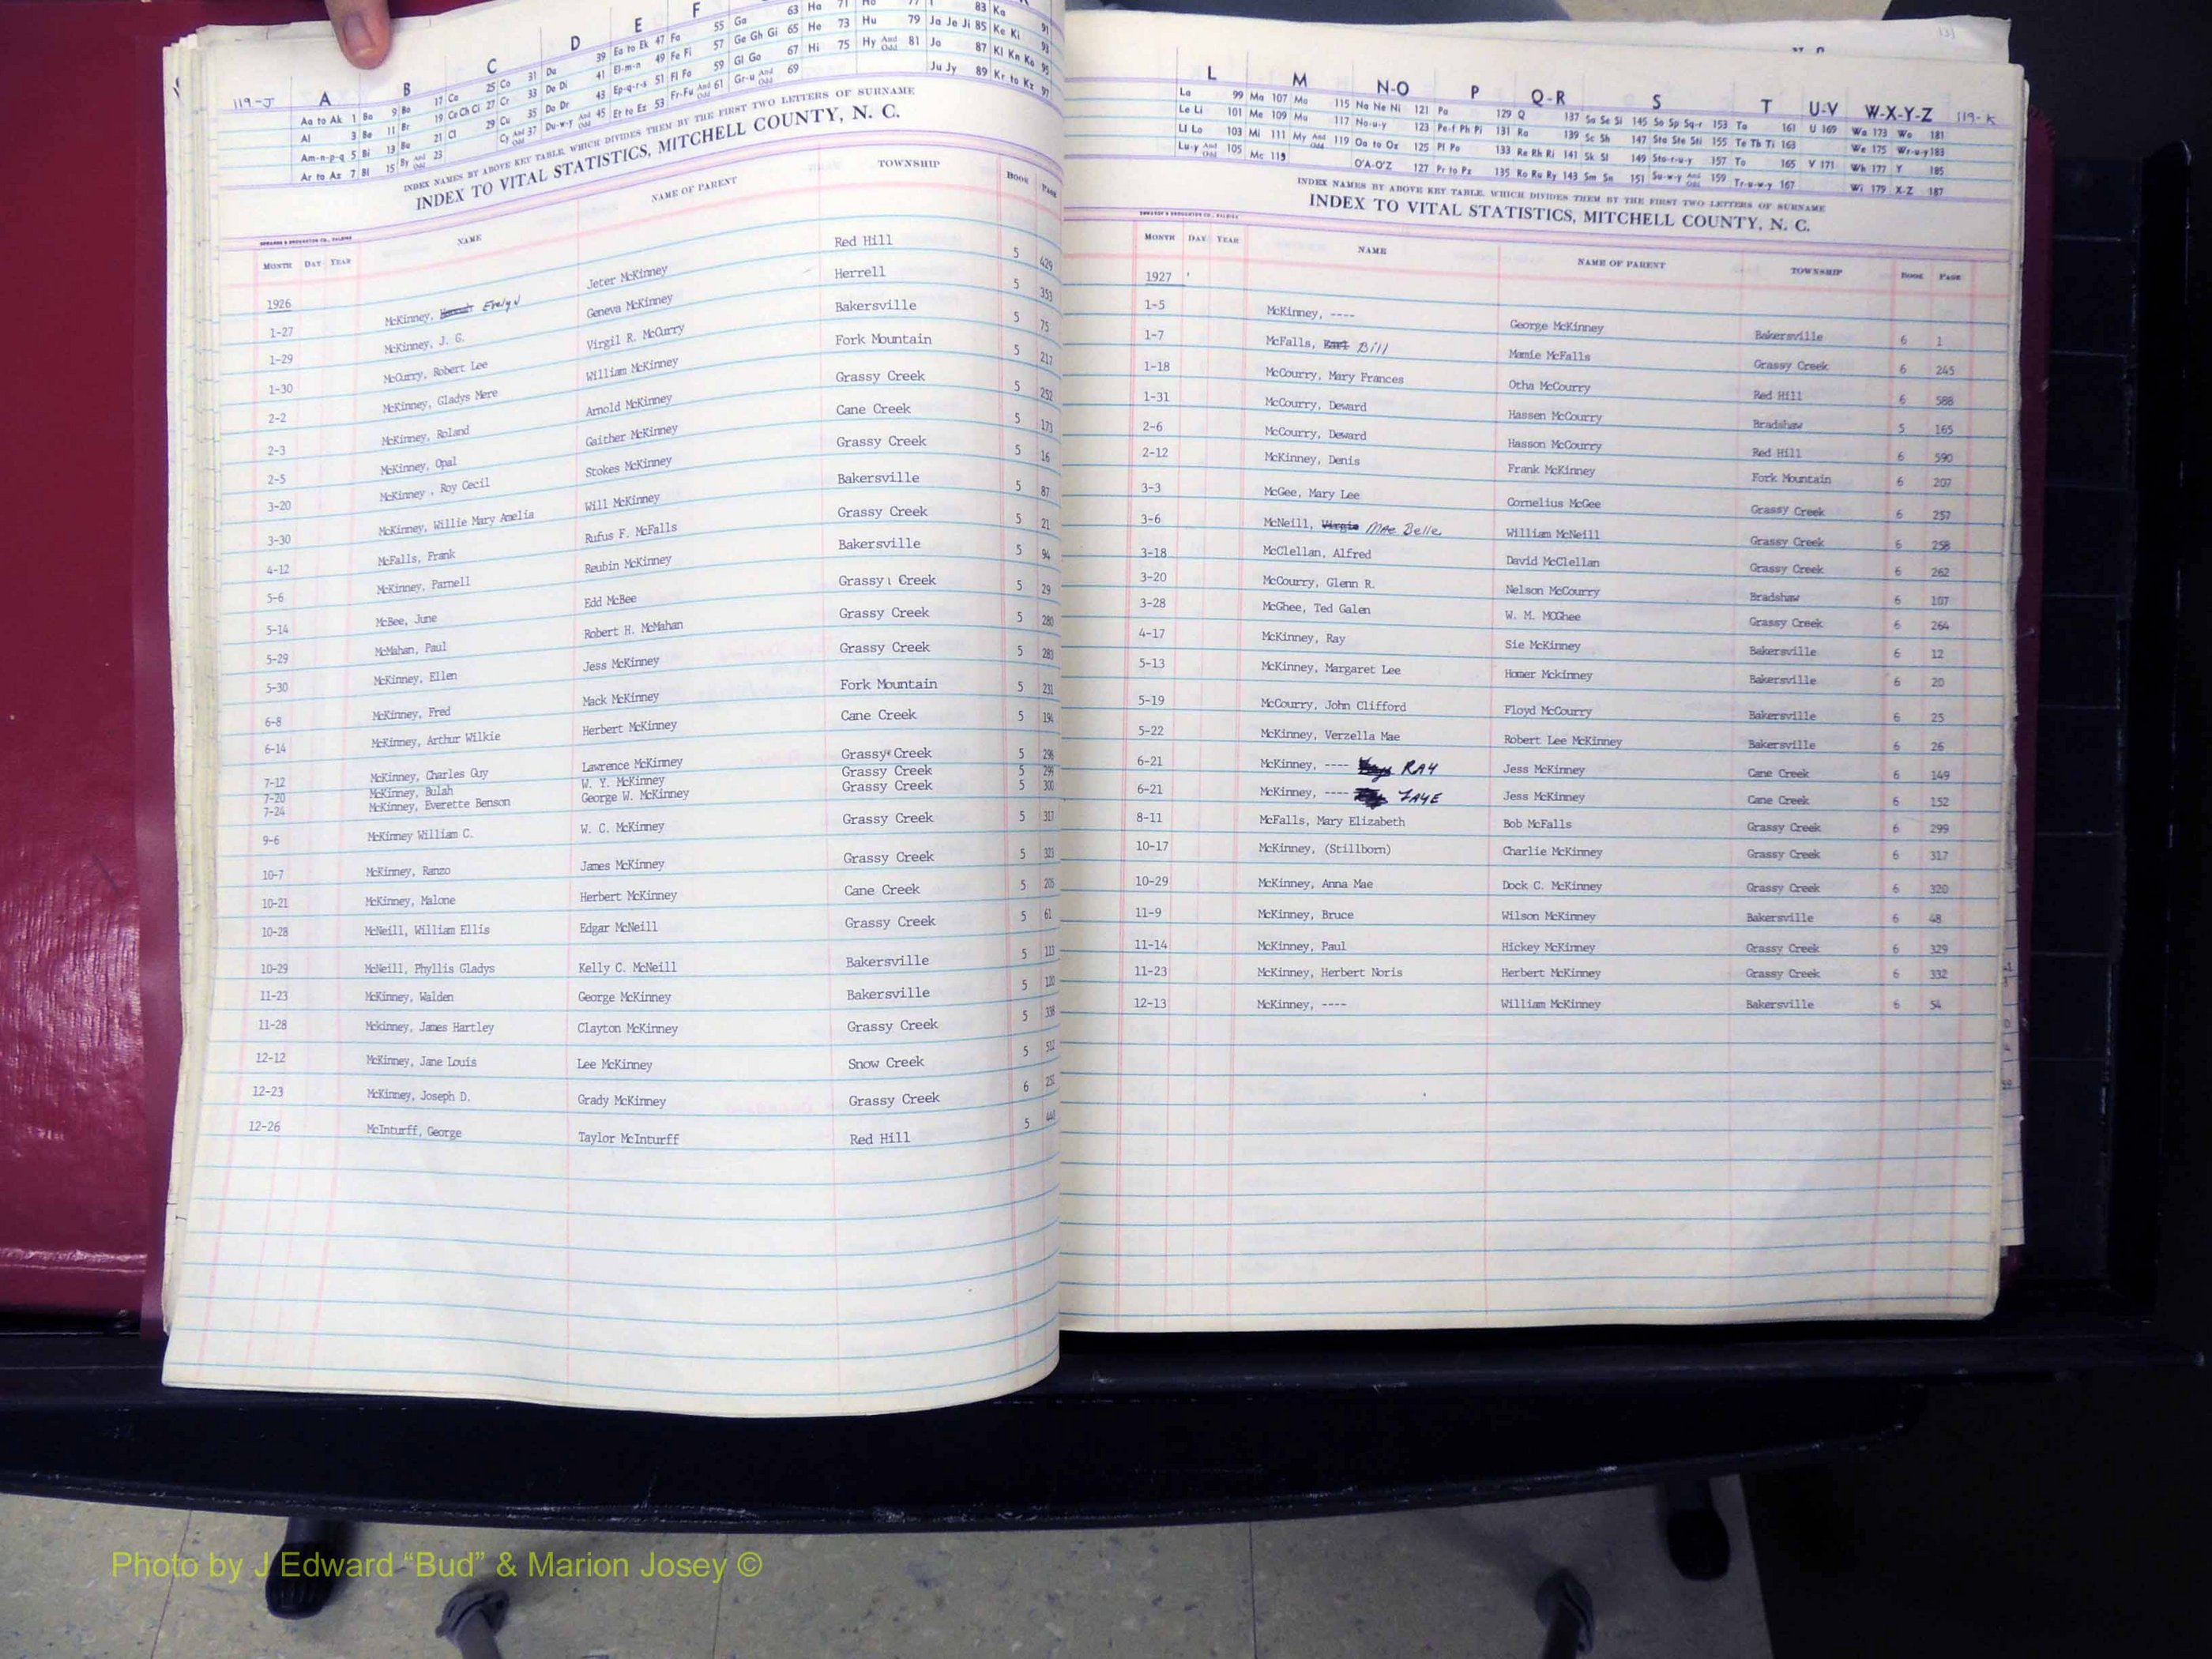 119-J
A B C D E F
Aa to Ak 1 Ba 9 Bo 17 Ca 25 Co 31 Da 39 Ea to Ek 47 Fa 55 Ga 63 Ha 71 Ho 77 I 83 Ka 91
Al 3 Be 11 Br 19 Ce Ch Ci 27 Cr 33 De Di 41 El-m-n 49 Fe Fi 57 Ge Gh Gi 65 He 73 Hu 79 Ja Je Ji 85 Ke Ki 93
Am-n-p-q 5 Bi 13 Bu 21 Cl 29 Cu 35 Do Dr 43 Ep-q-r-s 51 Fl Fo 59 Gl Go 67 Hi 75 Hy And Odd 81 Jo 87 Kl Kn Ko 95
Ar to Az 7 Bl 15 By And Odd 23 Cy And Odd 37 Du-w-y And Odd 45 Et to Ez 53 Fr-Fu And Odd 61 Gr-u And Odd 69 Ju Jy 89 Kr to Kz 97
INDEX NAMES BY ABOVE KEY TABLE, WHICH DIVIDES THEM BY THE FIRST TWO LETTERS OF SURNAME
INDEX TO VITAL STATISTICS, MITCHELL COUNTY, N. C.
MONTH DAY YEAR NAME NAME OF PARENT TOWNSHIP BOOK PAGE
1926
1-27 McKinney, Evelyn Jeter McKinney Red Hill 5 429
1-29 McKinney, J. G. Geneva McKinney Herrell 5 353
1-30 McCurry, Robert Lee Virgil R. McCurry Bakersville 5 75
2-2 McKinney, Gladys Mere William McKinney Fork Mountain 5 217
2-3 McKinney, Roland Arnold McKinney Grassy Creek 5 252
2-5 McKinney, Opal Gaither McKinney Cane Creek 5 173
3-20 McKinney , Roy Cecil Stokes McKinney Grassy Creek 5 16
3-30 McKinney, Willie Mary Amelia Will McKinney Bakersville 5 87
4-12 McFalls, Frank Rufus F. McFalls Grassy Creek 5 21
5-6 McKinney, Parnell Reubin McKinney Bakersville 5 94
5-14 McBee, June Edd McBee Grassy Creek 5 29
5-29 McMahan, Paul Robert H. McMahan Grassy Creek 5 280
5-30 McKinney, Ellen Jess McKinney Grassy Creek 5 283
6-8 McKinney, Fred Mack McKinney Fork Mountain 5 231
6-14 McKinney, Arthur Wilkie Herbert McKinney Cane Creek 5 194
7-12 McKinney, Charles Guy Lawrence McKinney Grassy Creek 5 296
7-20 McKinney, Bulah W. Y. McKinney Grassy Creek 5 299
7-24 McKinney, Everette Benson George W. McKinney Grassy Creek 5 300
9-6 McKinney William C. W. C. McKinney Grassy Creek 5 317
10-7 McKinney, Ranzo James McKinney Grassy Creek 5 323
10-21 McKinney, Malone Herbert McKinney Cane Creek 5 205
10-28 McNeill, William Ellis Edgar McNeill Grassy Creek 5 61
10-29 McNeill, Phyllis Gladys Kelly C. McNeill Bakersville 5 113
11-23 McKinney, Walden George McKinney Bakersville 5 120
11-28 Mckinney, James Hartley Clayton McKinney Grassy Creek 5 338
12-12 McKinney, Jane Louis Lee McKinney Snow Creek 5 512
12-23 McKinney, Joseph D. Grady McKinney Grassy Creek 6 252
12-26 McInturff, George Taylor McInturff Red Hill 5 440
L M N-O P Q-R S T U-V W-X-Y-Z 119-K
La 99 Ma 107 Mo 115 Na Ne Ni 121 Pa 129 Q 137 Sa Se Si 145 So Sp Sq-r 153 Ta 161 U 169 Wa 173 Wo 181
Le Li 101 Me 109 Mu 117 No-u-y 123 Pe-f Ph Pi 131 Ra 139 Sc Sh 147 Sta Ste Sti 155 Te Th Ti 163 We 175 Wr-u-y 183
Ll Lo 103 Mi 111 My And Odd 119 Oa to Oz 125 Pl Po 133 Re Rh Ri 141 Sk Sl 149 Sto-r-u-y 157 To 165 V 171 Wh 177 Y 185
Lu-y And Odd 105 Mc 113 O'A-O'Z 127 Pr to Pz 135 Ro Ru Ry 143 Sm Sn 151 Su-w-y And Odd 159 Tr-u-w-y 167 Wi 179 X-Z 187
INDEX NAMES BY ABOVE KEY TABLE, WHICH DIVIDES THEM BY THE FIRST TWO LETTERS OF SURNAME
INDEX TO VITAL STATISTICS, MITCHELL COUNTY, N. C.
MONTH DAY YEAR NAME NAME OF PARENT TOWNSHIP BOOK PAGE
1927
1-5 McKinney, ---- George McKinney Bakersville 6 1
1-7 McFalls, Bill Mamie McFalls Grassy Creek 6 245
1-18 McCourry, Mary Frances Otha McCourry Red Hill 6 588
1-31 McCourry, Deward Hassen McCourry Bradshaw 5 165
2-6 McCourry, Deward Hasson McCourry Red Hill 6 590
2-12 McKinney, Denis Frank McKinney Fork Mountain 6 207
3-3 McGee, Mary Lee Cornelius McGee Grassy Creek 6 257
3-6 McNeill, Virgie Mae Belle William McNeill Grassy Creek 6 258
3-18 McClellan, Alfred David McClellan Grassy Creek 6 262
3-20 McCourry, Glenn R. Nelson McCourry Bradshaw 6 107
3-28 McGhee, Ted Galen W. M. MCGhee Grassy Creek 6 264
4-17 McKinney, Ray Sie McKinney Bakersville 6 12
5-13 McKinney, Margaret Lee Homer Mckinney Bakersville 6 20
5-19 McCourry, John Clifford Floyd McCourry Bakersville 6 25
5-22 McKinney, Verzella Mae Robert Lee McKinney Bakersville 6 26
6-21 McKinney, ---- RAY Jess McKinney Cane Creek 6 149
6-21 McKinney, ---- FAYE Jess McKinney Cane Creek 6 152
8-11 McFalls, Mary Elizabeth Bob McFalls Grassy Creek 6 299
10-17 McKinney, (Stillborn) Charlie McKinney Grassy Creek 6 317
10-29 McKinney, Anna Mae Dock C. McKinney Grassy Creek 6 320
11-9 McKinney, Bruce Wilson McKinney Bakersville 6 48
11-14 McKinney, Paul Hickey McKinney Grassy Creek 6 329
11-23 McKinney, Herbert Noris Herbert McKinney Grassy Creek 6 332
12-13 McKinney, ---- William McKinney Bakersville 6 54
Photo by J Edward “Bud” & Marion Josey ©